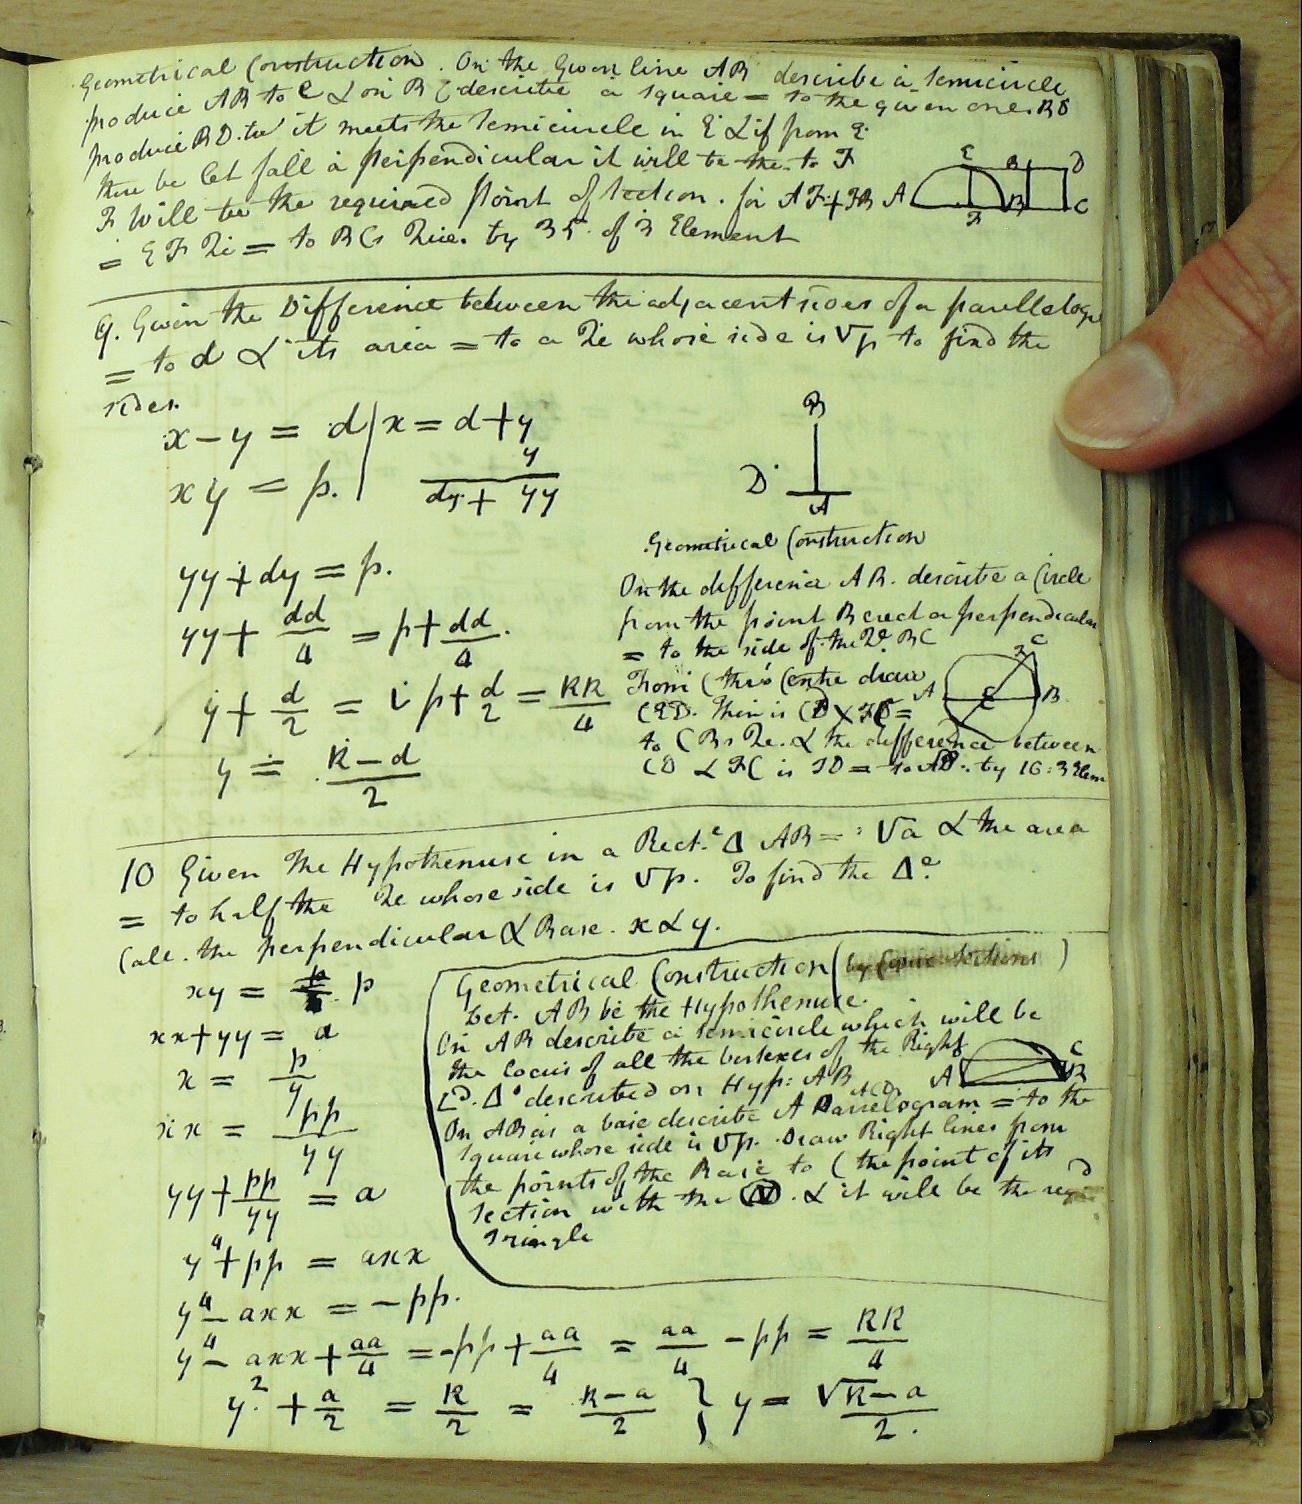 Geometrical Construction. On the Given line AB describe a semicircle
produce AB to C & on BC describe a square = to the given one. BD
produce BD till it meets the semicircle in E & if from E
there be let fall a perpendicular it will be the to F
F Will be the required Point of section. for AF+FB
= EF Qe = to BCs Qre. by 35 of 3 Element
E B D
A F B C
9. Given the Difference between the adjacent sides of a parellelogr
= to d & its area = to a Qe whose side is √p to find the
sides.
x - y = d | x = d + y
y
xy = p. | dy + yy
yy + dy = p.
yy + dd/4 = p + dd/4.
y + d/2 = √p + d/2 = RR/4
y = R - d/2
B
D
A
Geometrical Construction
On the difference AB. describe a Circle
from the point B erect a perpendicular
= to the side of the Qe. BC
From C thro' Centre draw
CED. Then is CD X FC =
to CBs Qe. & the difference between
CD & FC is FD = to AB. by 16:3 Elem
F C
A E B
10 Given The Hypothenuse in a Rect.e Δ AB = √a & the area
= to half the Qe whose side is √p. To find the Δe.
Call. the perpendicular & Base. x & y.
xy = p
xx + yy = a
x = p/y
xx = pp/yy
yy + pp/yy = a
y⁴ + pp = axx
y⁴ - axx = -pp.
y⁴ - axx + aa/4 = -pp + aa/4 = aa/4 - pp = RR/4
y² + a/2 = R/2 = R-a/2 } y = √R-a/2.
Geometrical Construction (by Conic Sections)
Let. AB be the Hypothenuse.
On AB describe a semicircle which will be
the locus of all the vertexes of the Right
∠D. Δs described on Hyp: AB
On AB as a base describe A Parrelogram ACD = to the
square whose side is √p. Draw Right lines from
the points of the Base to C the point of its
section with the & it will be the reqd
Triangle
A C B